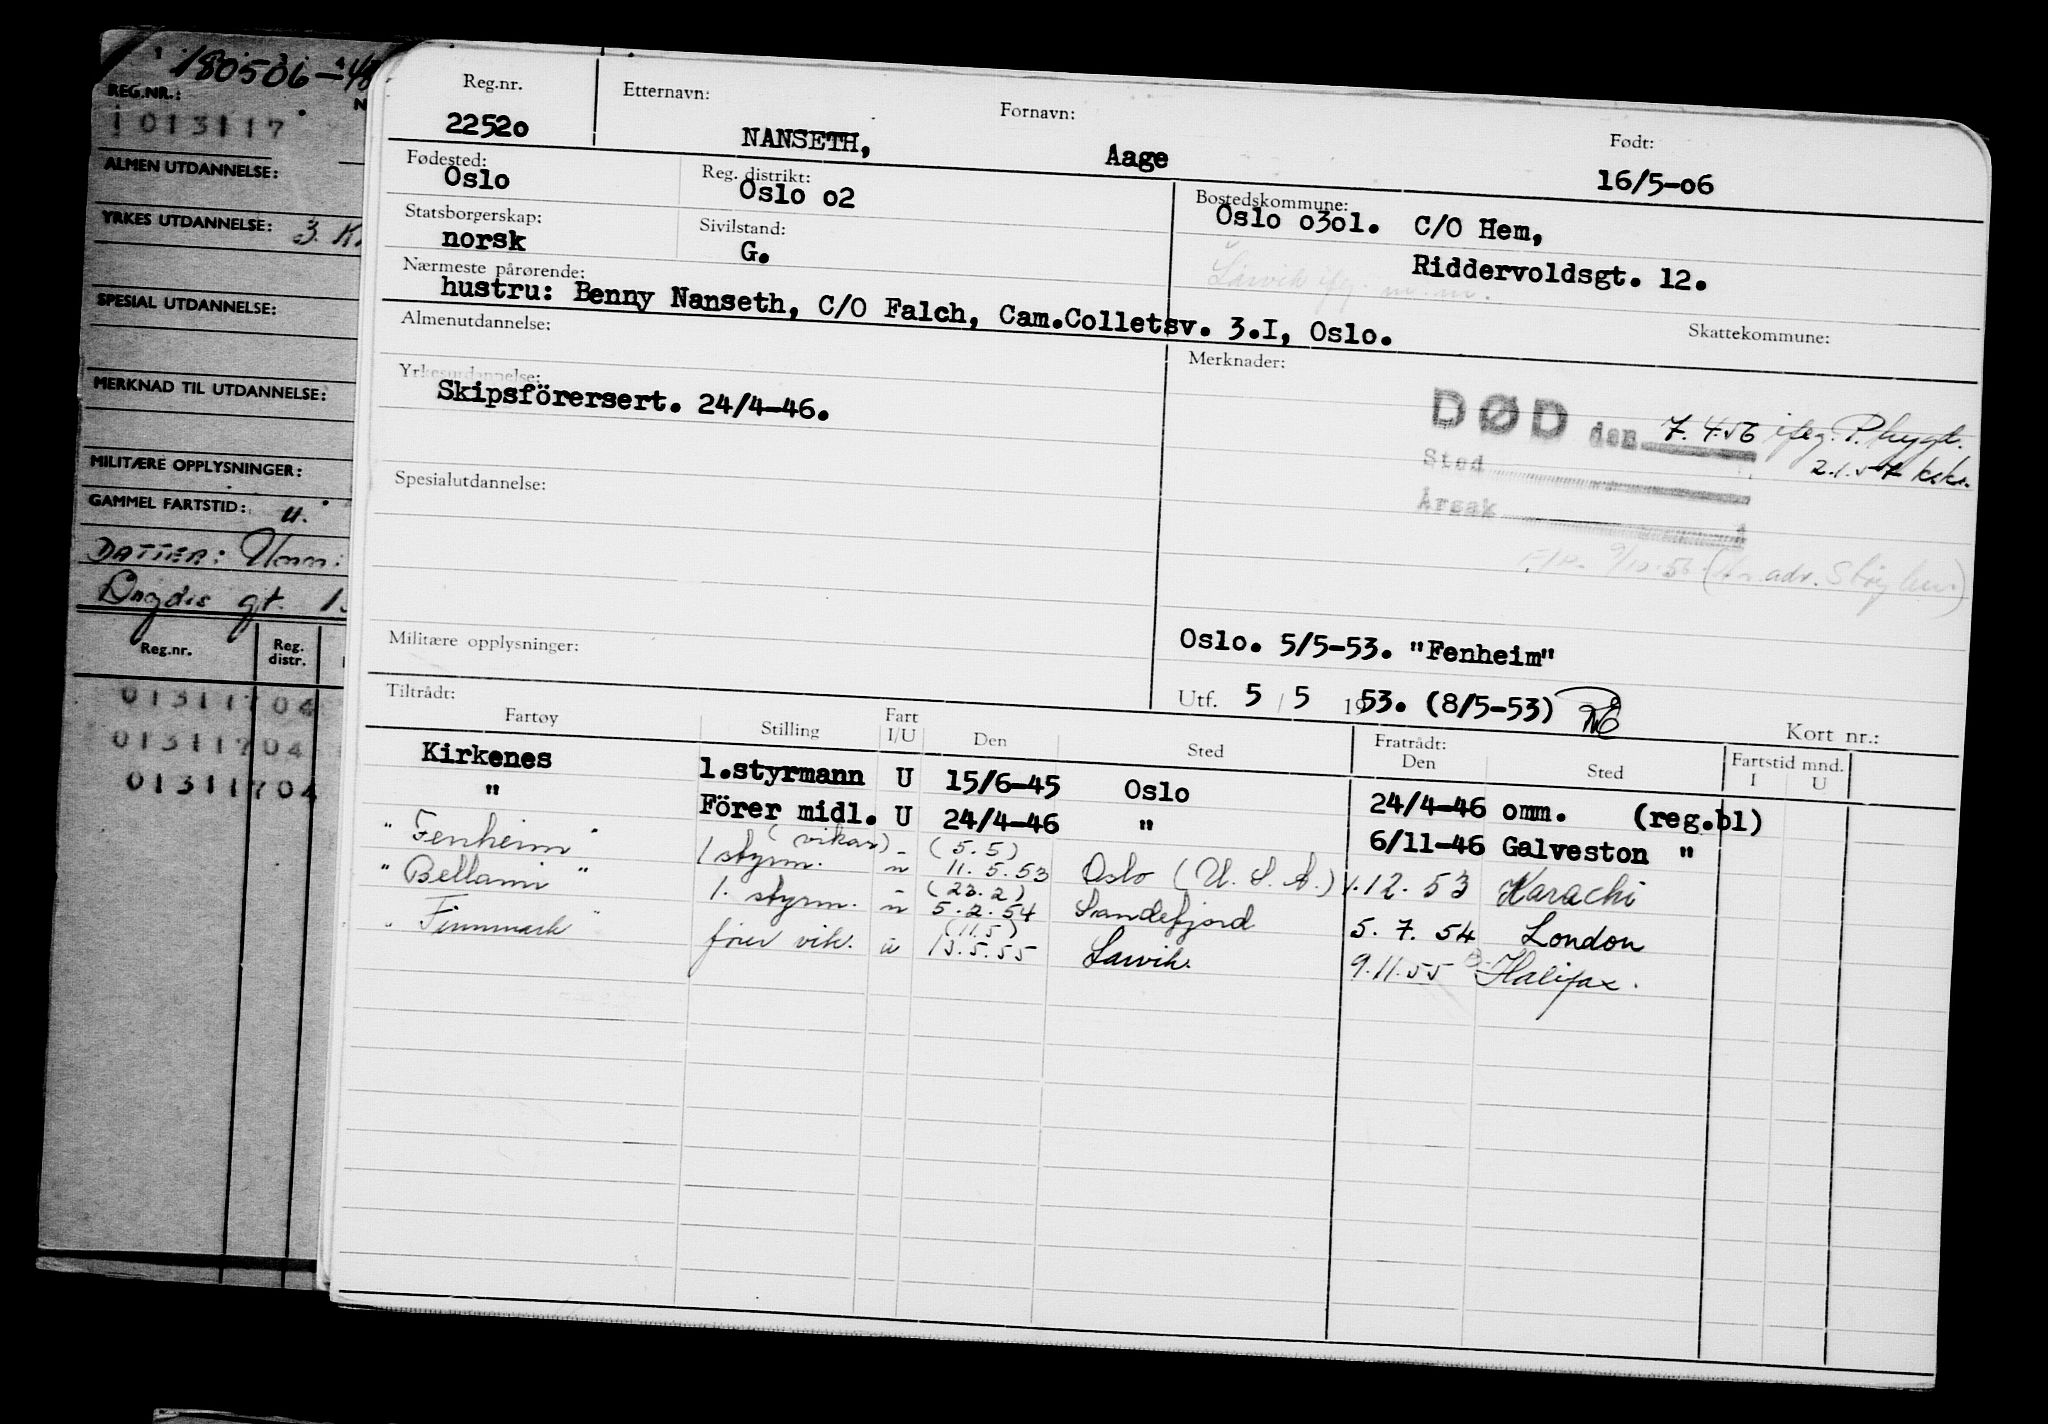 180506-48
REG.NR.:
1013117
ALMEN UTDANNELSE:
YRKES UTDANNELSE: 3.
SPESIAL UTDANNELSE:
MERKNAD TIL UTDANNELSE:
MILITÆRE OPPLYSNINGER:
GAMMEL FARTSTID: u.
DATTER:
gt.
Reg.nr. Reg. distr.
01311704
01311704
01311704
Reg.nr. Etternavn: Fornavn: Født:
22520 NANSETH, Aage 16/5-06
Fødested: Reg. distrikt: Bostedskommune:
Oslo Oslo o2 Oslo o3ol. C/O Hem,
Statsborgerskap: Sivilstand:
norsk G. Riddervoldsgt. 12.
Larvik
Nærmeste pårørende:
hustru: Benny Nanseth, C/O Falch, Cam.Colletsv. 3.I, Oslo.
Skattekommune:
Almenutdannelse: Merknader:
Yrkesutdannelse:
Skipsförersert. 24/4-46.
DØD den 7.4.56 ifg.
2.1.57
Sted
Årsak
Spesialutdannelse:
Oslo. 5/5-53. "Fenheim"
Militære opplysninger:
Utf. 5 / 5 1953. (8/5-53)
Tiltrådt: Fratrådt: Kort nr.:
Fartøy Stilling Fart I/U Den Sted Den Sted Fartstid mnd. I U
Kirkenes 1.styrmann U 15/6-45 Oslo 24/4-46 omm. (reg.bl)
" Förer midl. U 24/4-46 " 6/11-46 Galveston "
(vikar) (5.5)
"Fenheim" 1 styrm. u 11.5.53 Oslo (U.S.A.) 1.12.53 Karachi
(23.2)
"Bellami" 1. styrm. u 5.2.54 Sandefjord 5.7.54 London
(11.5)
"Finnmark" fører vik. u 13.5.55 Larvik. 9.11.55 Halifax.